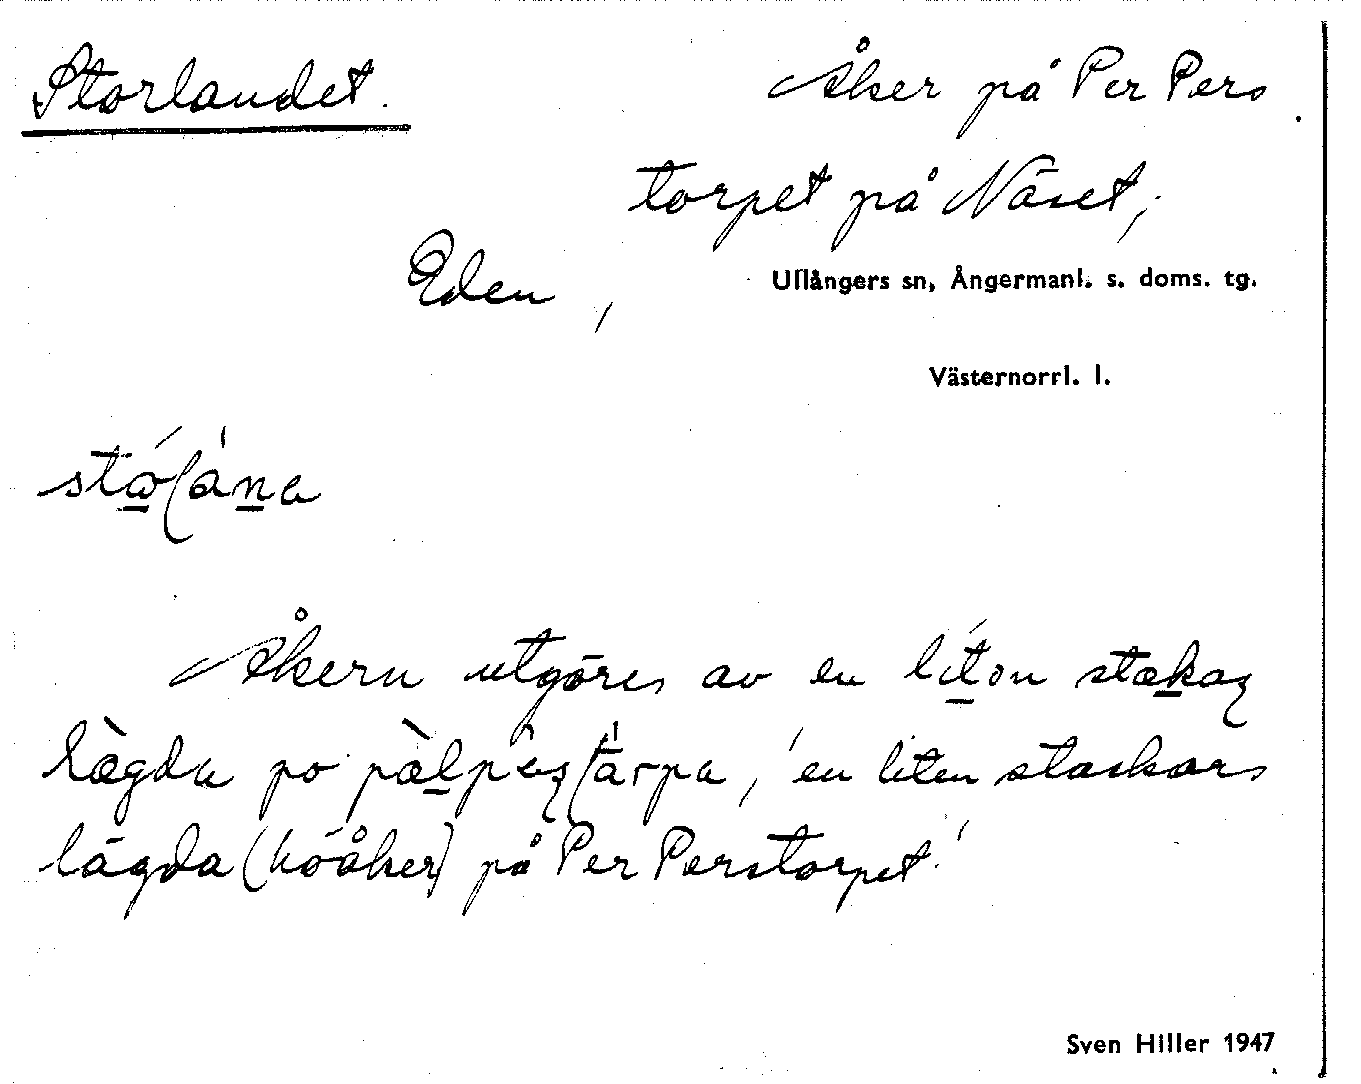 Storlandet.
Åker på Per Pers
torpet på Näset,
Eden,
Ullångers sn, Ångermanl. s. doms. tg.
Västernorrl. l.
Åkern utgöres av en
lǜgda po , 'en liten stackars
lägda (höåker) på Per Perstorpet.'
Sven Hiller 1947